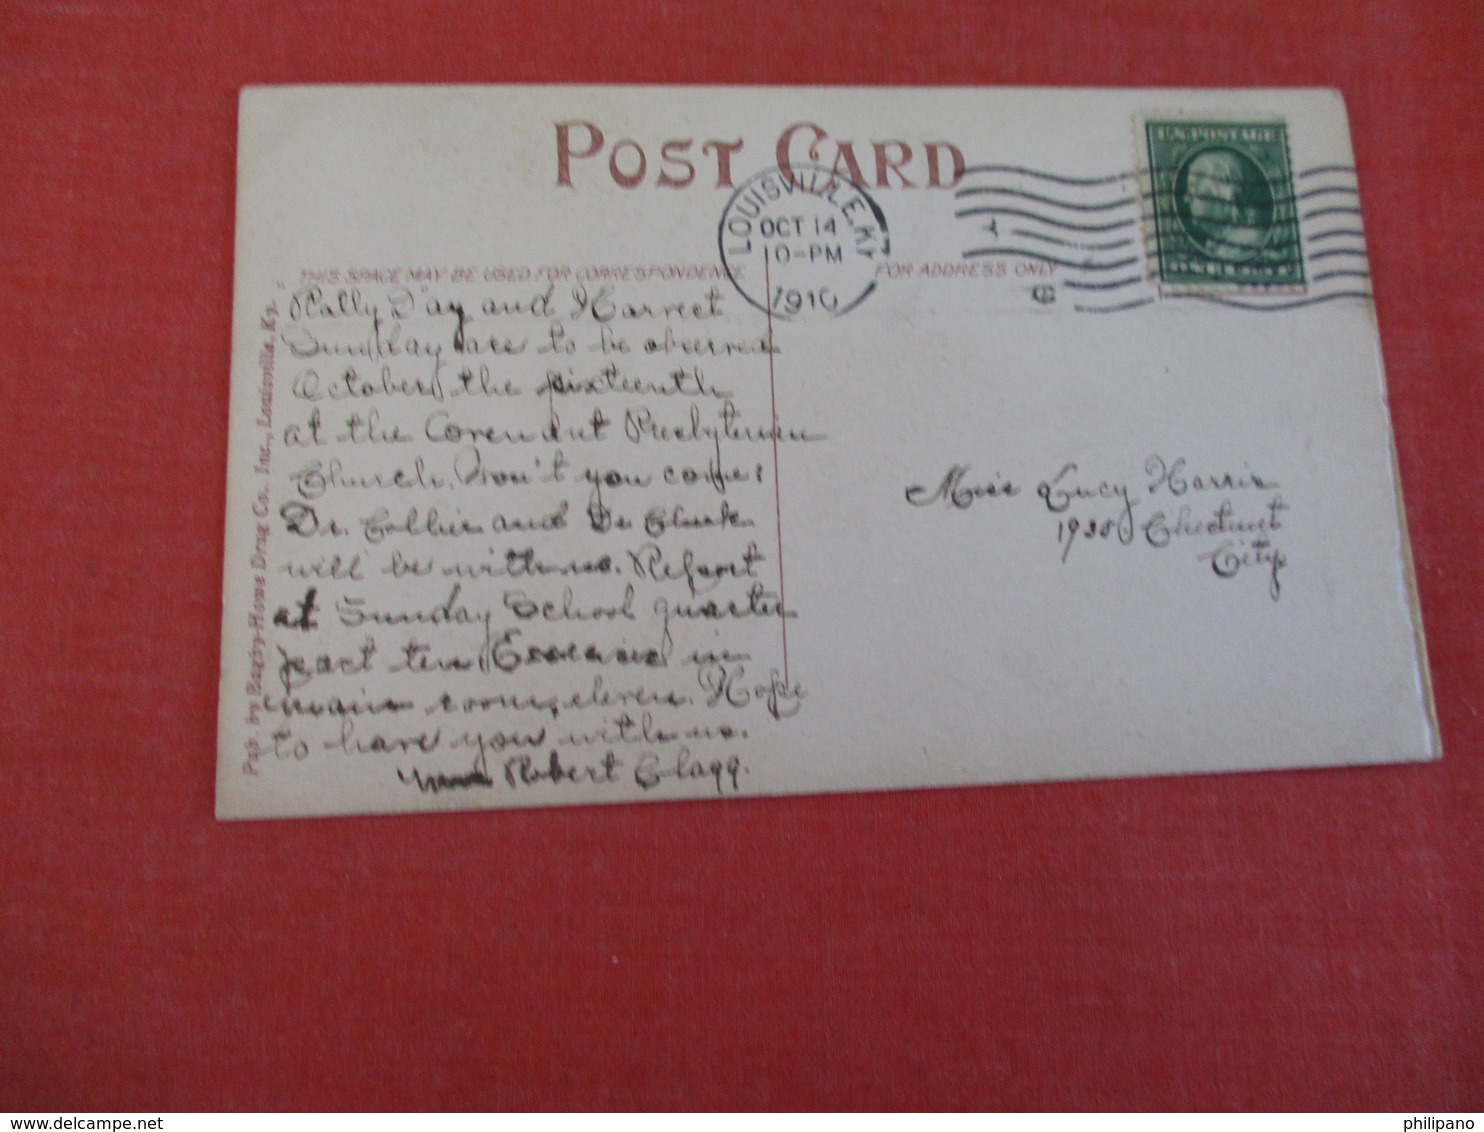 POST CARD
LOUISVILLE, KY
OCT 14
10-PM
1910
U.S. POSTAGE
THIS SPACE MAY BE USED FOR CORRESPONDENCE
FOR ADDRESS ONLY
Pub. by Bagby-Howe Drug Co., Inc., Louisville, Ky.
Rally Day and Harvest
Sunday are to be observed
October the sixteenth
at the Covenant Presbyterian
Church. Won't you come?
Dr. Collier and Dr.
will be with us. Report
at Sunday School quarter
past ten. Exercises in
main room, eleven. Hope
to have you with us.
Robert Clagg.
Miss Lucy Harris
Chestnut
City.
delcampe.net
philipano